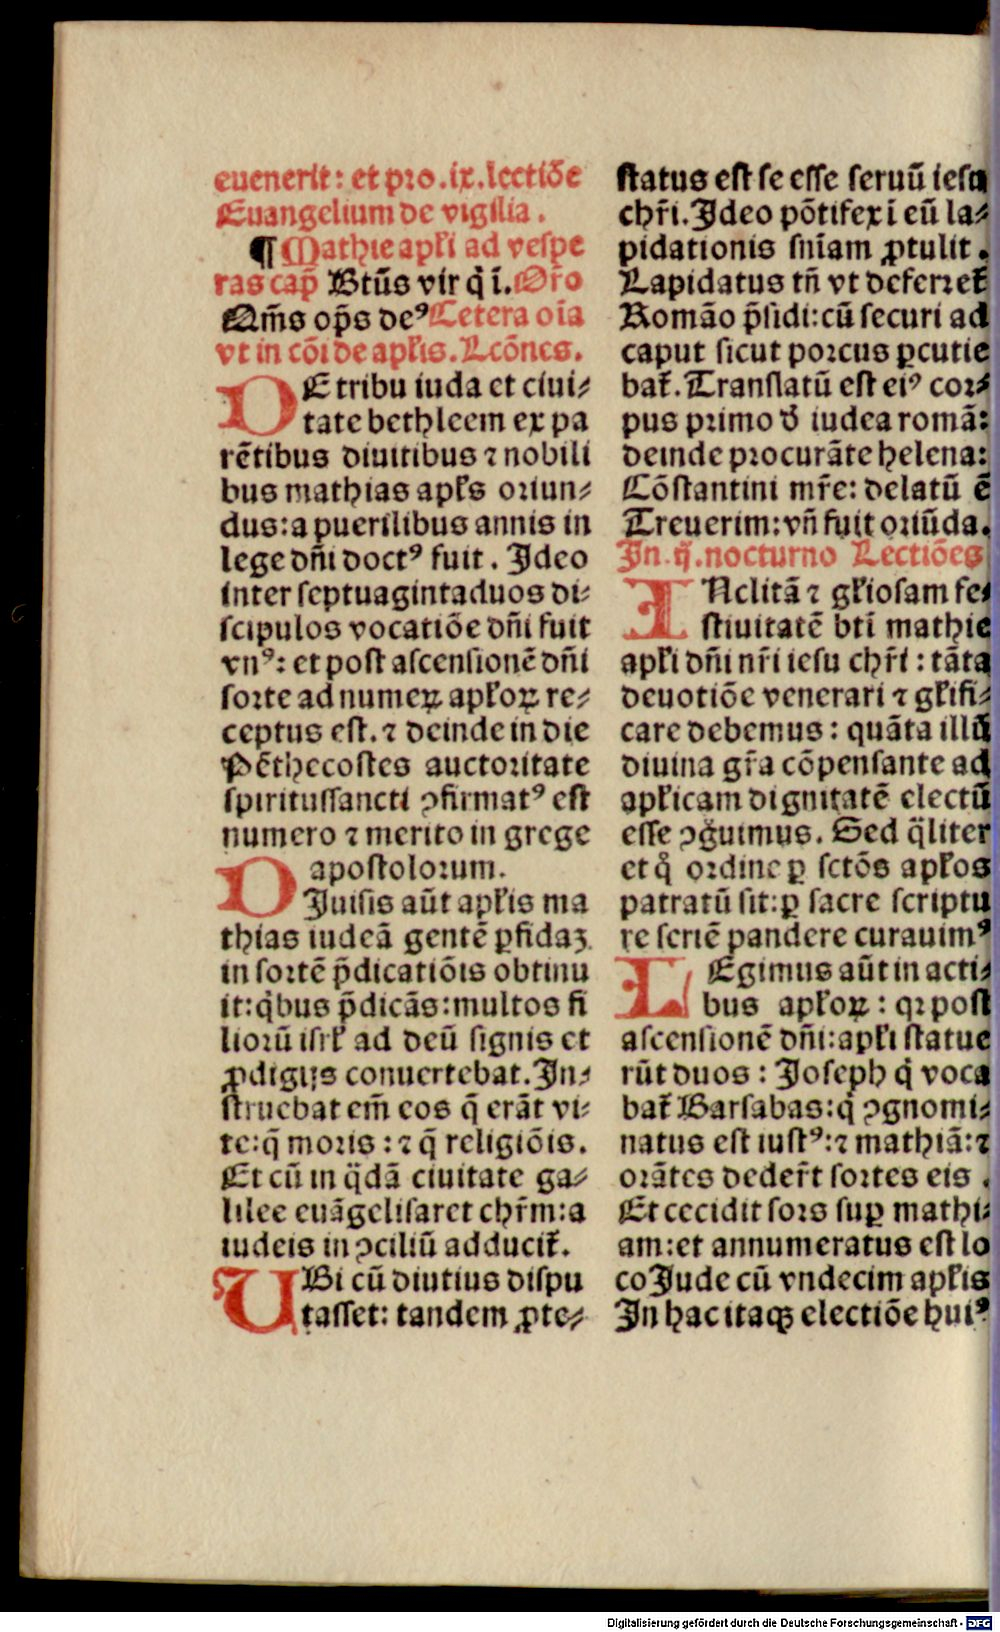 euenerit: et pro .ix. lectiōe
Euangelium de vigilia.
¶ Mathie apłi ad vespe
ras cap̄ Btūs vir q̇ ī. Or̄o
Om̄s op̄s deꝰ Cetera oīa
vt in cōi de apłis. Lcōnes.
DE tribu iuda et ciui⸗
tate bethleem ex pa
rētibus diuitibus ⁊ nobili
bus mathias apłs oriun⸗
dus: a puerilibus annis in
lege dn̄i doctꝰ fuit. Ideo
inter septuagintaduos di⸗
scipulos vocatiōe dn̄i fuit
vnꝰ: et post ascensionē dn̄i
sorte ad numeꝝ apłoꝝ re⸗
ceptus est. ⁊ deinde in die
Pēthecostes auctoritate
spiritussancti ꝯfirmatꝰ est
numero ⁊ merito in grege
apostolorum.
DIuisis aūt apłis ma
thias iudeā gentē ꝑfidaꝫ
in sortē p̄dicatiōis obtinu
it: q̇bus p̄dicās: multos fi
liorū isrł ad deū signis et
ꝓdigijs conuertebat. In⸗
struebat em̄ eos q̄ erāt vi⸗
te: q̄ moris: ⁊ q̄ religiōis.
Et cū in q̈dā ciuitate ga⸗
lilee euāgelisaret chr̄m: a
iudeis in ꝯciliū adducit̄.
UBi cū diutius dispu
tasset: tandem ꝓte⸗
status est se esse seruū iesu
chr̄i. Ideo pōtifex ī eū la⸗
pidationis sn̄iam ꝓtulit.
Lapidatus tn̄ vt deferret̄
Romāo p̄sidi: cū securi ad
caput sicut porcus ꝑcutie
bat̄. Translatū est eiꝰ cor⸗
pus primo d̓ iudea romā:
deinde procurāte helena:
Cōstantini mr̄e: delatū ē
Treuerim: vn̄ fuit oriūda.
In .ij. nocturno Lectiōes
INclitā ⁊ głiosam fe⸗
stiuitatē bti̅ mathie
apłi dn̄i nr̄i iesu chr̄i: tāta
deuotiōe venerari ⁊ głifi⸗
care debemus: quāta illū
diuina gr̄a cōpensante ad
apłicam dignitatē electū
esse ꝯg̈uimus. Sed q̈liter
et q̊ ordine ꝑ sctōs apłos
patratū sit: ꝑ sacre scriptu
re seriē pandere curauimꝰ
LEgimus aūt in acti⸗
bus apłoꝝ: qꝛ post
ascensionē dn̄i: apłi statue
rūt duos: Joseph q̇ voca
bat̄ Barsabas: q̇ ꝯgnomi⸗
natus est iustꝰ: ⁊ mathiā: ⁊
orātes deder̄t sortes eis.
Et cecidit sors suꝑ mathi⸗
am: et annumeratus est lo
co Jude cū vndecim apłis
In hac itaqꝫ electiōe huiꝰ
Digitalisierung gefördert durch die Deutsche Forschungsgemeinschaft - DFG